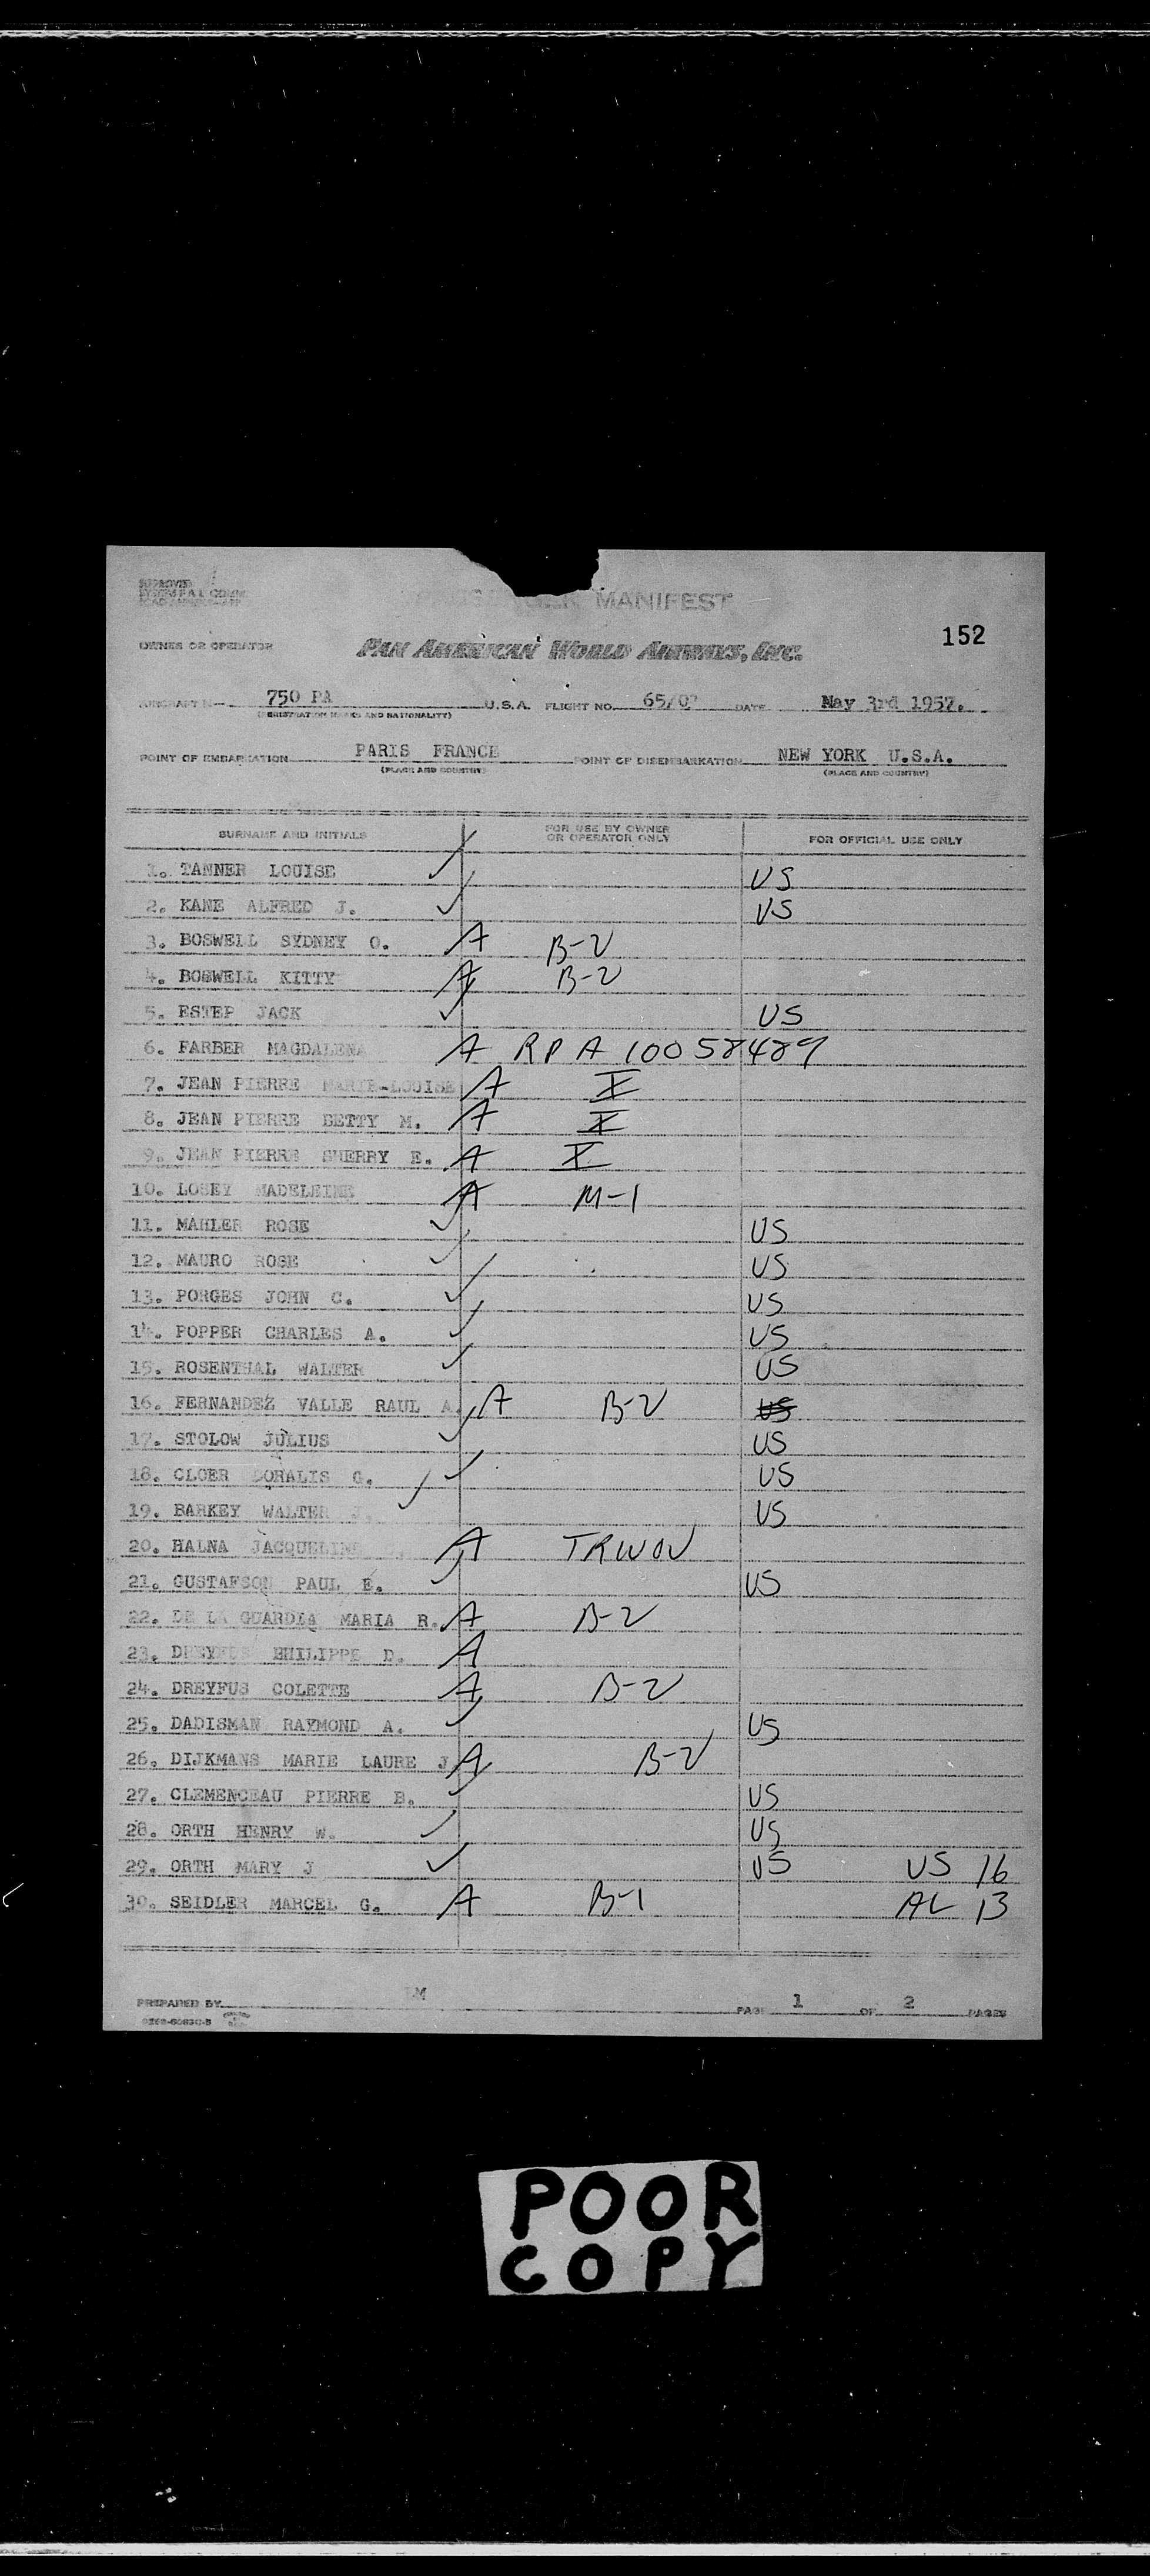 MANIFEST
152
OWNER OR OPERATOR PAN AMERICAN WORLD AIRWAYS, INC.
750 PA U.S.A. FLIGHT NO. DATE May 3rd 1957.
(REGISTRATION MARKS AND NATIONALITY)
POINT OF EMBARKATION PARIS FRANCE POINT OF DISEMBARKATION NEW YORK U.S.A.
(PLACE AND COUNTRY) (PLACE AND COUNTRY)
SURNAME AND INITIALS FOR USE BY OWNER OR OPERATOR ONLY FOR OFFICIAL USE ONLY
1. TANNER LOUISE ✓ US
2. KANE ALFRED J. ✓ US
3. BOSWELL SYDNEY O. A B-2
4. BOSWELL KITTY A B-2
5. ESTEP JACK ✓ US
6. FARBER MAGDALENA A RPA 10058489
7. JEAN PIERRE MARIE-LOUISE A X
8. JEAN PIERRE BETTY M. A X
9. JEAN PIERRE SHERRY E. A X
10. LOSEY MADELEINE A M-1
11. MAHLER ROSE ✓ US
12. MAURO ROSE ✓ US
13. PORGES JOHN C. ✓ US
14. POPPER CHARLES A. ✓ US
15. ROSENTHAL WALTER ✓ US
16. FERNANDEZ VALLE RAUL A. A B-2 US
17. STOLOW JULIUS ✓ US
18. CLOER DORALIS G. ✓ US
19. BARKEY WALTER J. ✓ US
20. HALNA JACQUELINE A TRWOV
21. GUSTAFSON PAUL E. ✓ US
22. DE LA GUARDIA MARIA R. A B-2
23. DREYFUS PHILIPPE D. A
24. DREYFUS COLETTE A B-2
25. DADISMAN RAYMOND A. ✓ US
26. DIJKMANS MARIE LAURE J A B-2
27. CLEMENCEAU PIERRE B. ✓ US
28. ORTH HENRY W. ✓ US
29. ORTH MARY J ✓ US US 16
30. SEIDLER MARCEL G. A B-1 AL 13
PREPARED BY PAGE 1 OF 2 PAGES
POOR
COPY